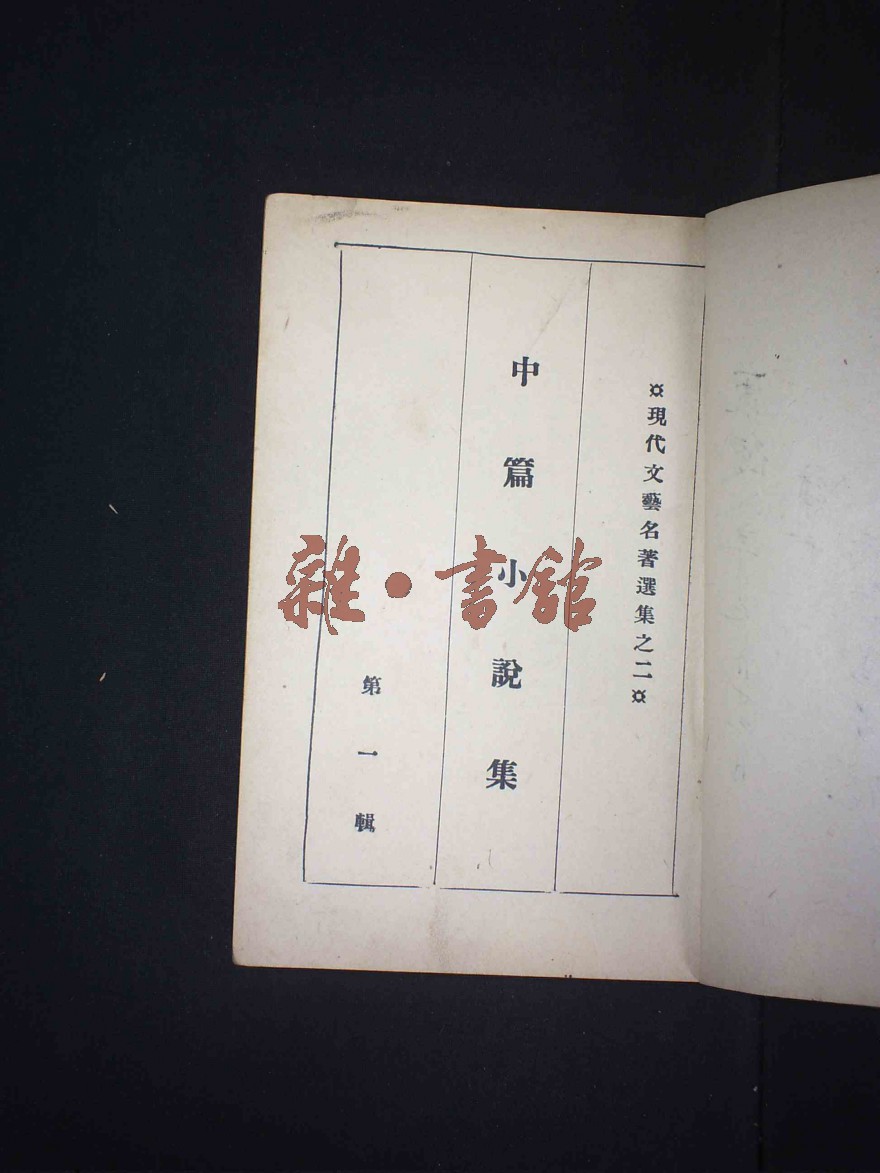 ¤現代文藝名著選集之二¤
中篇小說集
第一輯
雜·書館